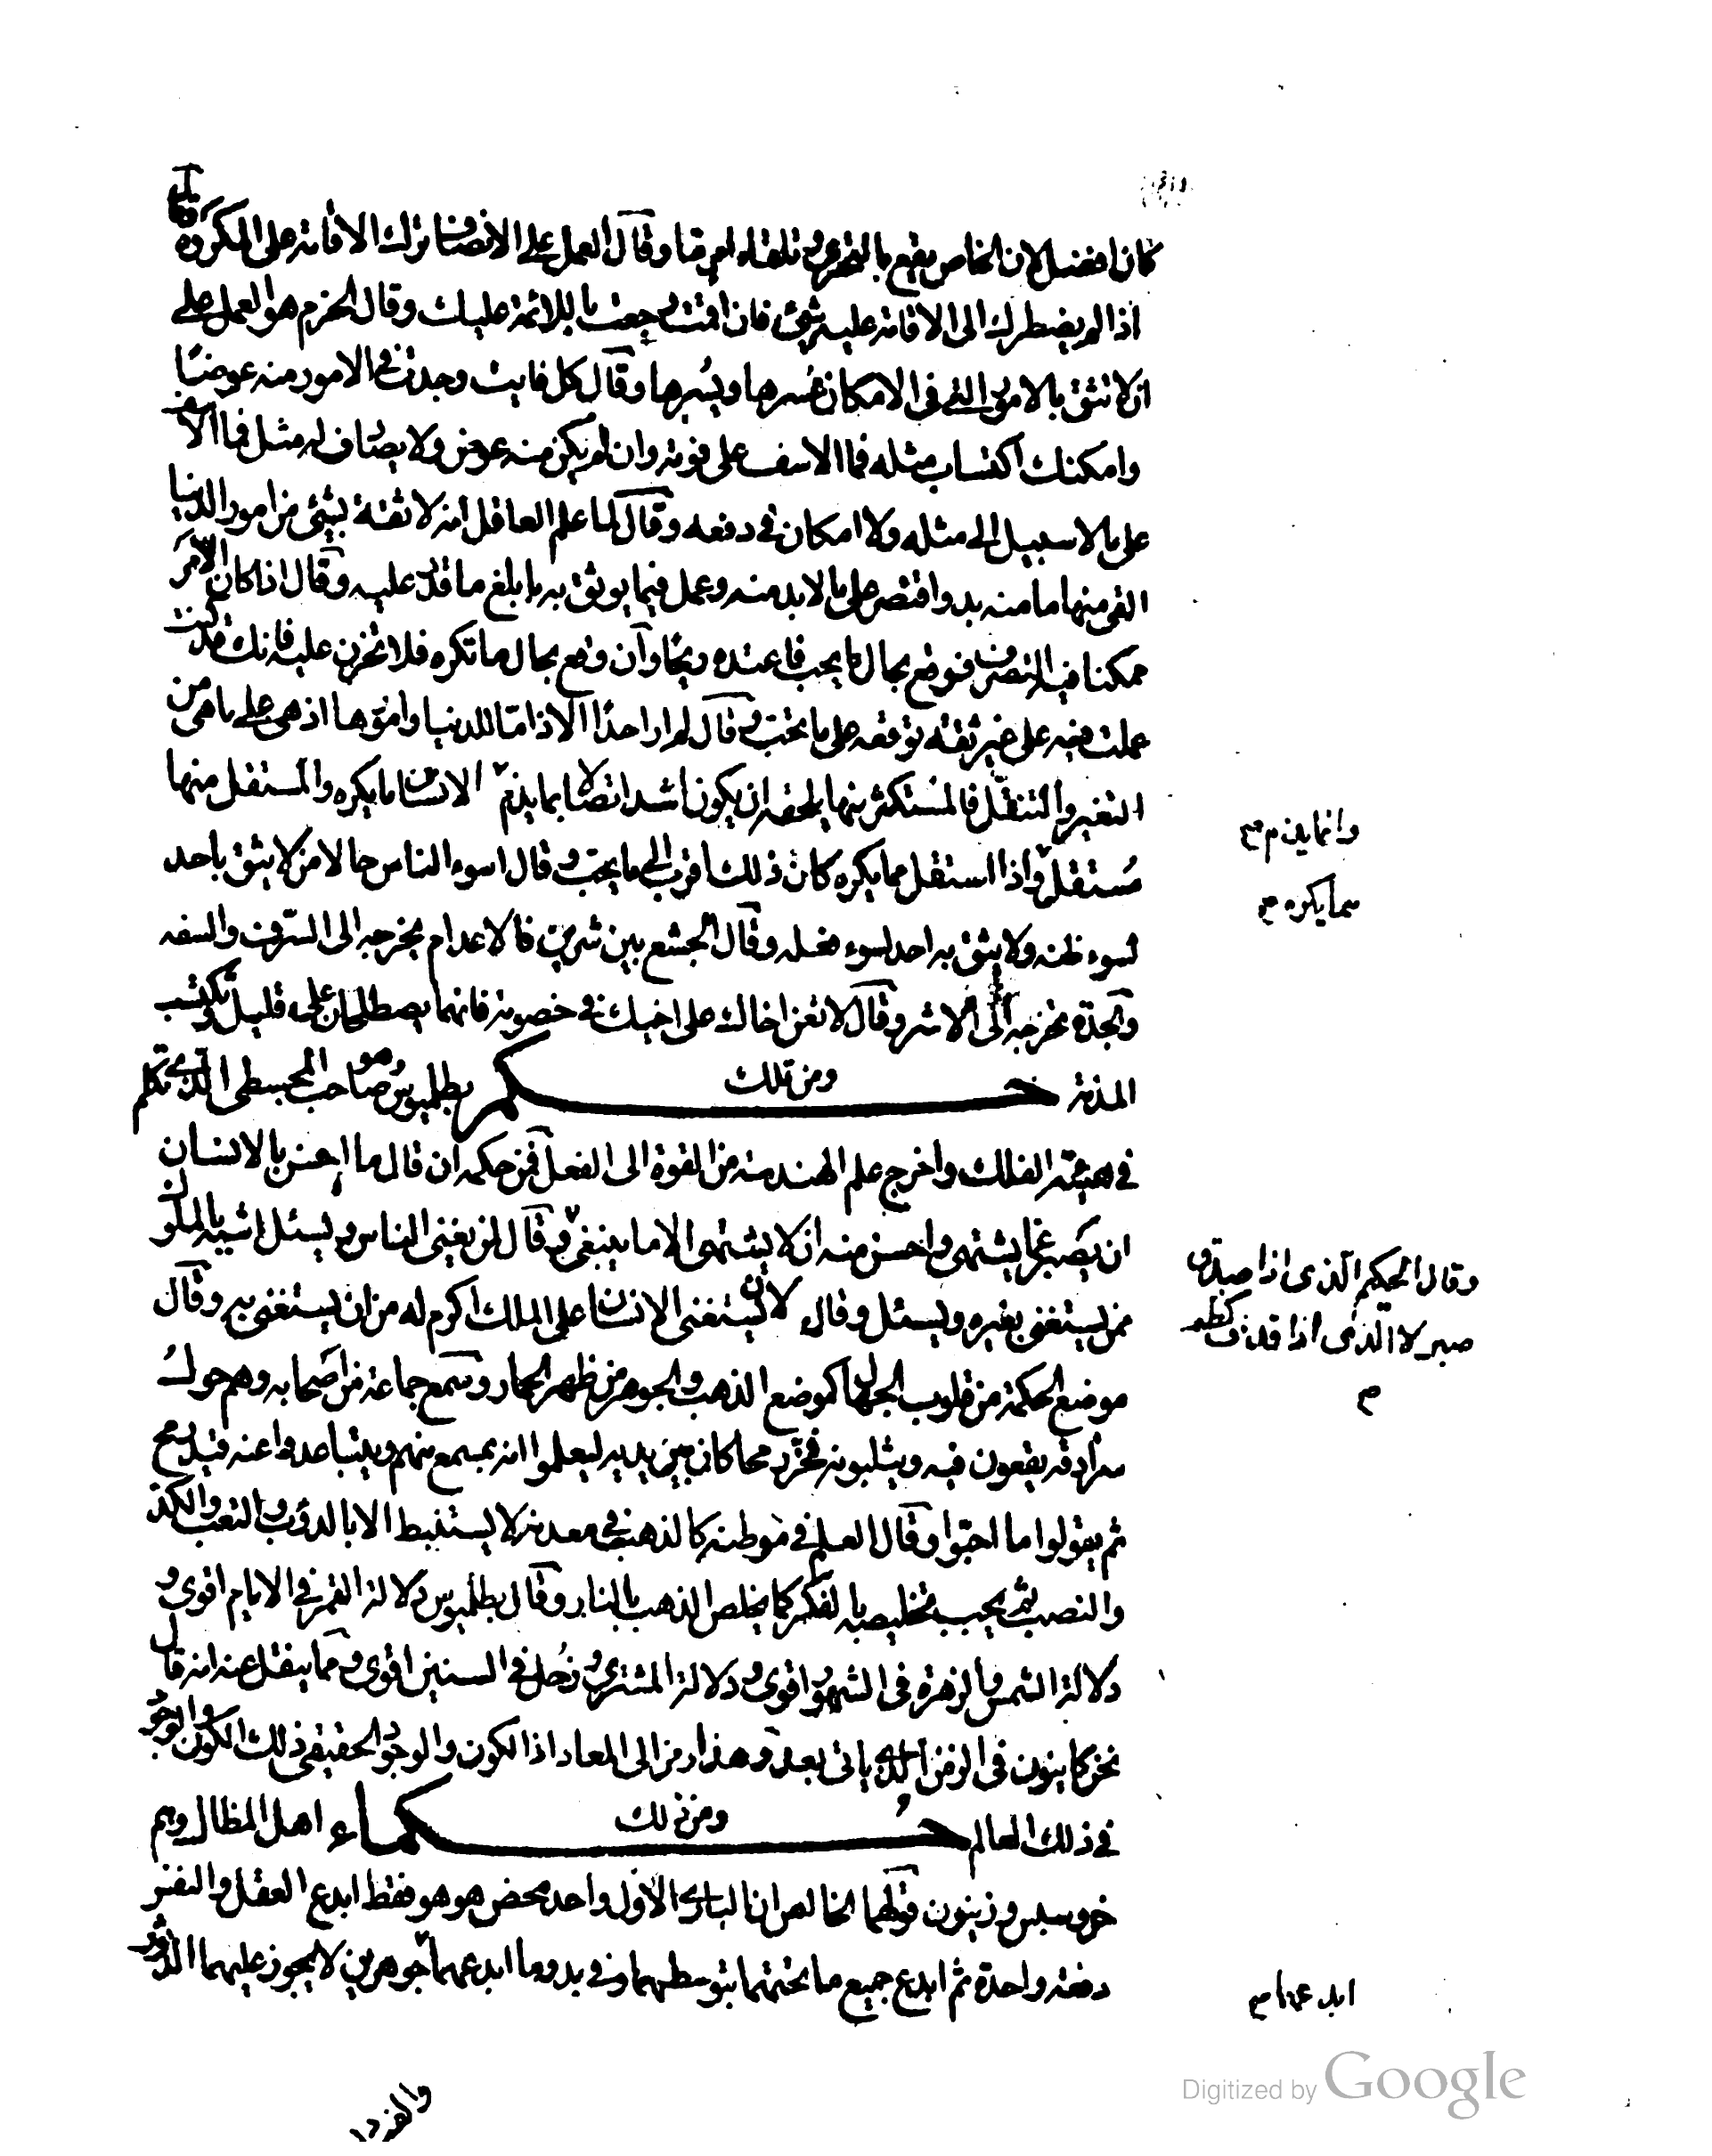 كان افضل لان الخاص يقع بالتحري وتلقاء امر ما وقال العمل على الانصاف ترك الاقامة على المكروه وقال
اذا لم يضطرك الى الاقامة عليه شئ فان اقمت رجعت باللائمة عليك وقال الحزم هو العمل على
ان لا تثق بالامور التي في الامكان عسرها ويسرها وقال كل فايت وجدت في الامور منه عوضا
وامكنك اكتساب مثله فما الاسف على فوته وان لم يكن منه عوض ولا يصاف له مثل فما الاسف
على ما لا سبيل الى مثله ولا امكان في دفعه وقال لما علم العاقل انه لا ثقة بشئ من امور الدنيا
القى منها ما منه بد واقتصر على ما لا بد منه وعمل فيما يوثق به بابلغ ما قدر عليه وقال اذا كان الامر
ممكنا فيه التصرف فوقع بحال ما يحب فاعتده ربحا وان وقع بحال ما تكره فلا تحزن عليه فانك قد كنت
عملت فيه على غير ثقة بوقفه على ما تحب وقال لم ار احدا الا ذاما للدنيا وامورها اذ هي على ما هي من
التغير والتنقل فالمستكثر منها يلحقه ان يكون اشد اتصالا بما يذم الانسان ما يكره والمستقل منها
وانما يذم م ح
مستقل واذا استقل مما يكره كان ذلك اقرب الى ما يحب وقال اسوء الناس حالا من لا يثق باحد
مما يكره م ح
لسوء ظنه ولا يثق به احد لسوء فعله وقال الجشع بين شرين فالاعدام يخرجه الى السرف والسفه
والجدة تخرجه الى الاشر وقال لا تعن اخاك على اخيك في خصومة فانهما يصطلحان على قليل وتكتسب
المذمة ومن تلك حكم بطلميوس هو صاحب المجسطى الذى تكلم
في هيئة الفلك واخرج علم الهندسة من القوة الى الفعل فمن حكمه ان قال ما احسن بالانسان
ان يصبر عما يشتهى واحسن منه ان لا يشتهى الا ما ينبغى وقال لمن يغنى الناس ويسئل اشبه بالملوك
وقال الحكيم الذى اذا صدق
ممن يستغنى بغيره ويسئل وقال لان يستغنى الانسان على الملك اكرم له من ان يستغنى به وقال
صبر لا الذى اذا قذف كظم
م
موضع الحكمة من قلوب الجهال كموضع الذهب والجوهر من ظهر الحمار وسمع جماعة من اصحابه وهم حول
سرادقه يقعون فيه ويثلبونه فحرك رمحا كان بين يديه ليعلموا انه بمسمع منهم ويتباعدوا عنه قيد رمح
ثم يقولوا ما احبوا وقال العلم في موطنه كالذهب في معدنه لا يستنبط الا بالدؤب والتعب والكد
والنصب ثم يجب تخليصه بالفكر كما يخلص الذهب بالنار وقال بطلميوس دلالة القمر في الايام اقوى و
دلالة الشمس والزهرة في الشهور اقوى ودلالة المشترى وزحل في السنين اقوى ومما ينقل عنه انه قال
نحن كاينون في الزمن الذى ياتى بعد وهذا رمز الى المعاد اذ الكون والوجود الحقيقى ذلك الكون والوجود
في ذلك العالم ومن ذلك حكماء اهل المظال وهم
خروسبس وزينون قولهما الخالص ان البارى الاول واحد محض هو هو فقط ابدع العقل والنفس
دفعة واحدة ثم ابدع جميع ما تحتهما بتوسطهما وفي بدو ما ابدعهما جوهرين لا يجوز عليهما الدثور
ابدعهما م
والفناء
Digitized by Google